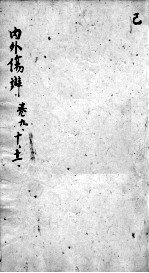 己
内外傷辨 卷九、十、十一、